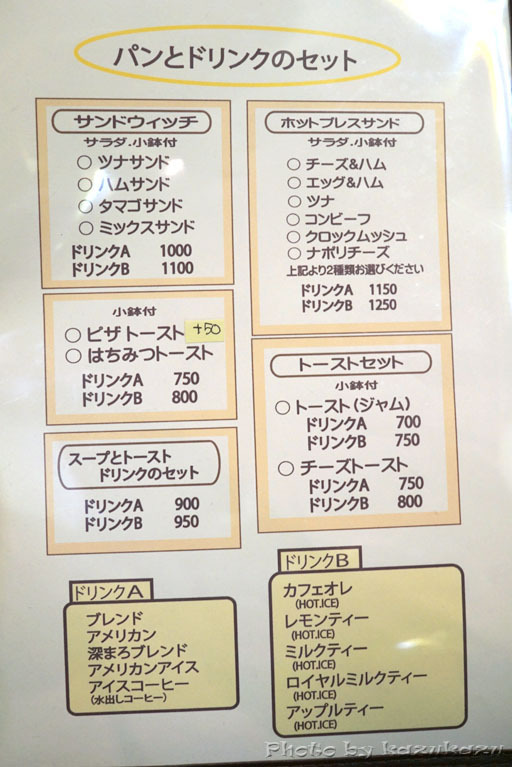 パンとドリンクのセット
サンドウィッチ
サラダ.小鉢付
○ ツナサンド
○ ハムサンド
○ タマゴサンド
○ ミックスサンド
ドリンクA 1000
ドリンクB 1100
小鉢付
○ ピザトースト +50
○ はちみつトースト
ドリンクA 750
ドリンクB 800
スープとトースト
ドリンクのセット
ドリンクA 900
ドリンクB 950
ホットプレスサンド
サラダ.小鉢付
○ チーズ&ハム
○ エッグ&ハム
○ ツナ
○ コンビーフ
○ クロックムッシュ
○ ナポリチーズ
上記より2種類お選びください
ドリンクA 1150
ドリンクB 1250
トーストセット
小鉢付
○ トースト(ジャム)
ドリンクA 700
ドリンクB 750
○ チーズトースト
ドリンクA 750
ドリンクB 800
ドリンクA
ブレンド
アメリカン
深まろブレンド
アメリカンアイス
アイスコーヒー
(水出しコーヒー)
ドリンクB
カフェオレ
(HOT.ICE)
レモンティー
(HOT.ICE)
ミルクティー
(HOT.ICE)
ロイヤルミルクティー
(HOT.ICE)
アップルティー
(HOT.ICE)
Photo by kazukazu